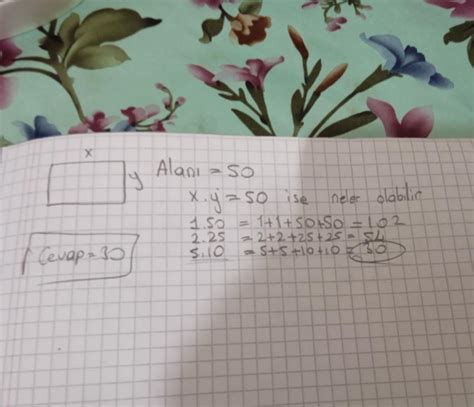 x
y Alanı = 50
x.y = 50 ise neler olabilir
1.50 = 1+1+50+50 = 102
2.25 = 2+2+25+25 = 54
5.10 = 5+5+10+10 = 30
Cevap = 30